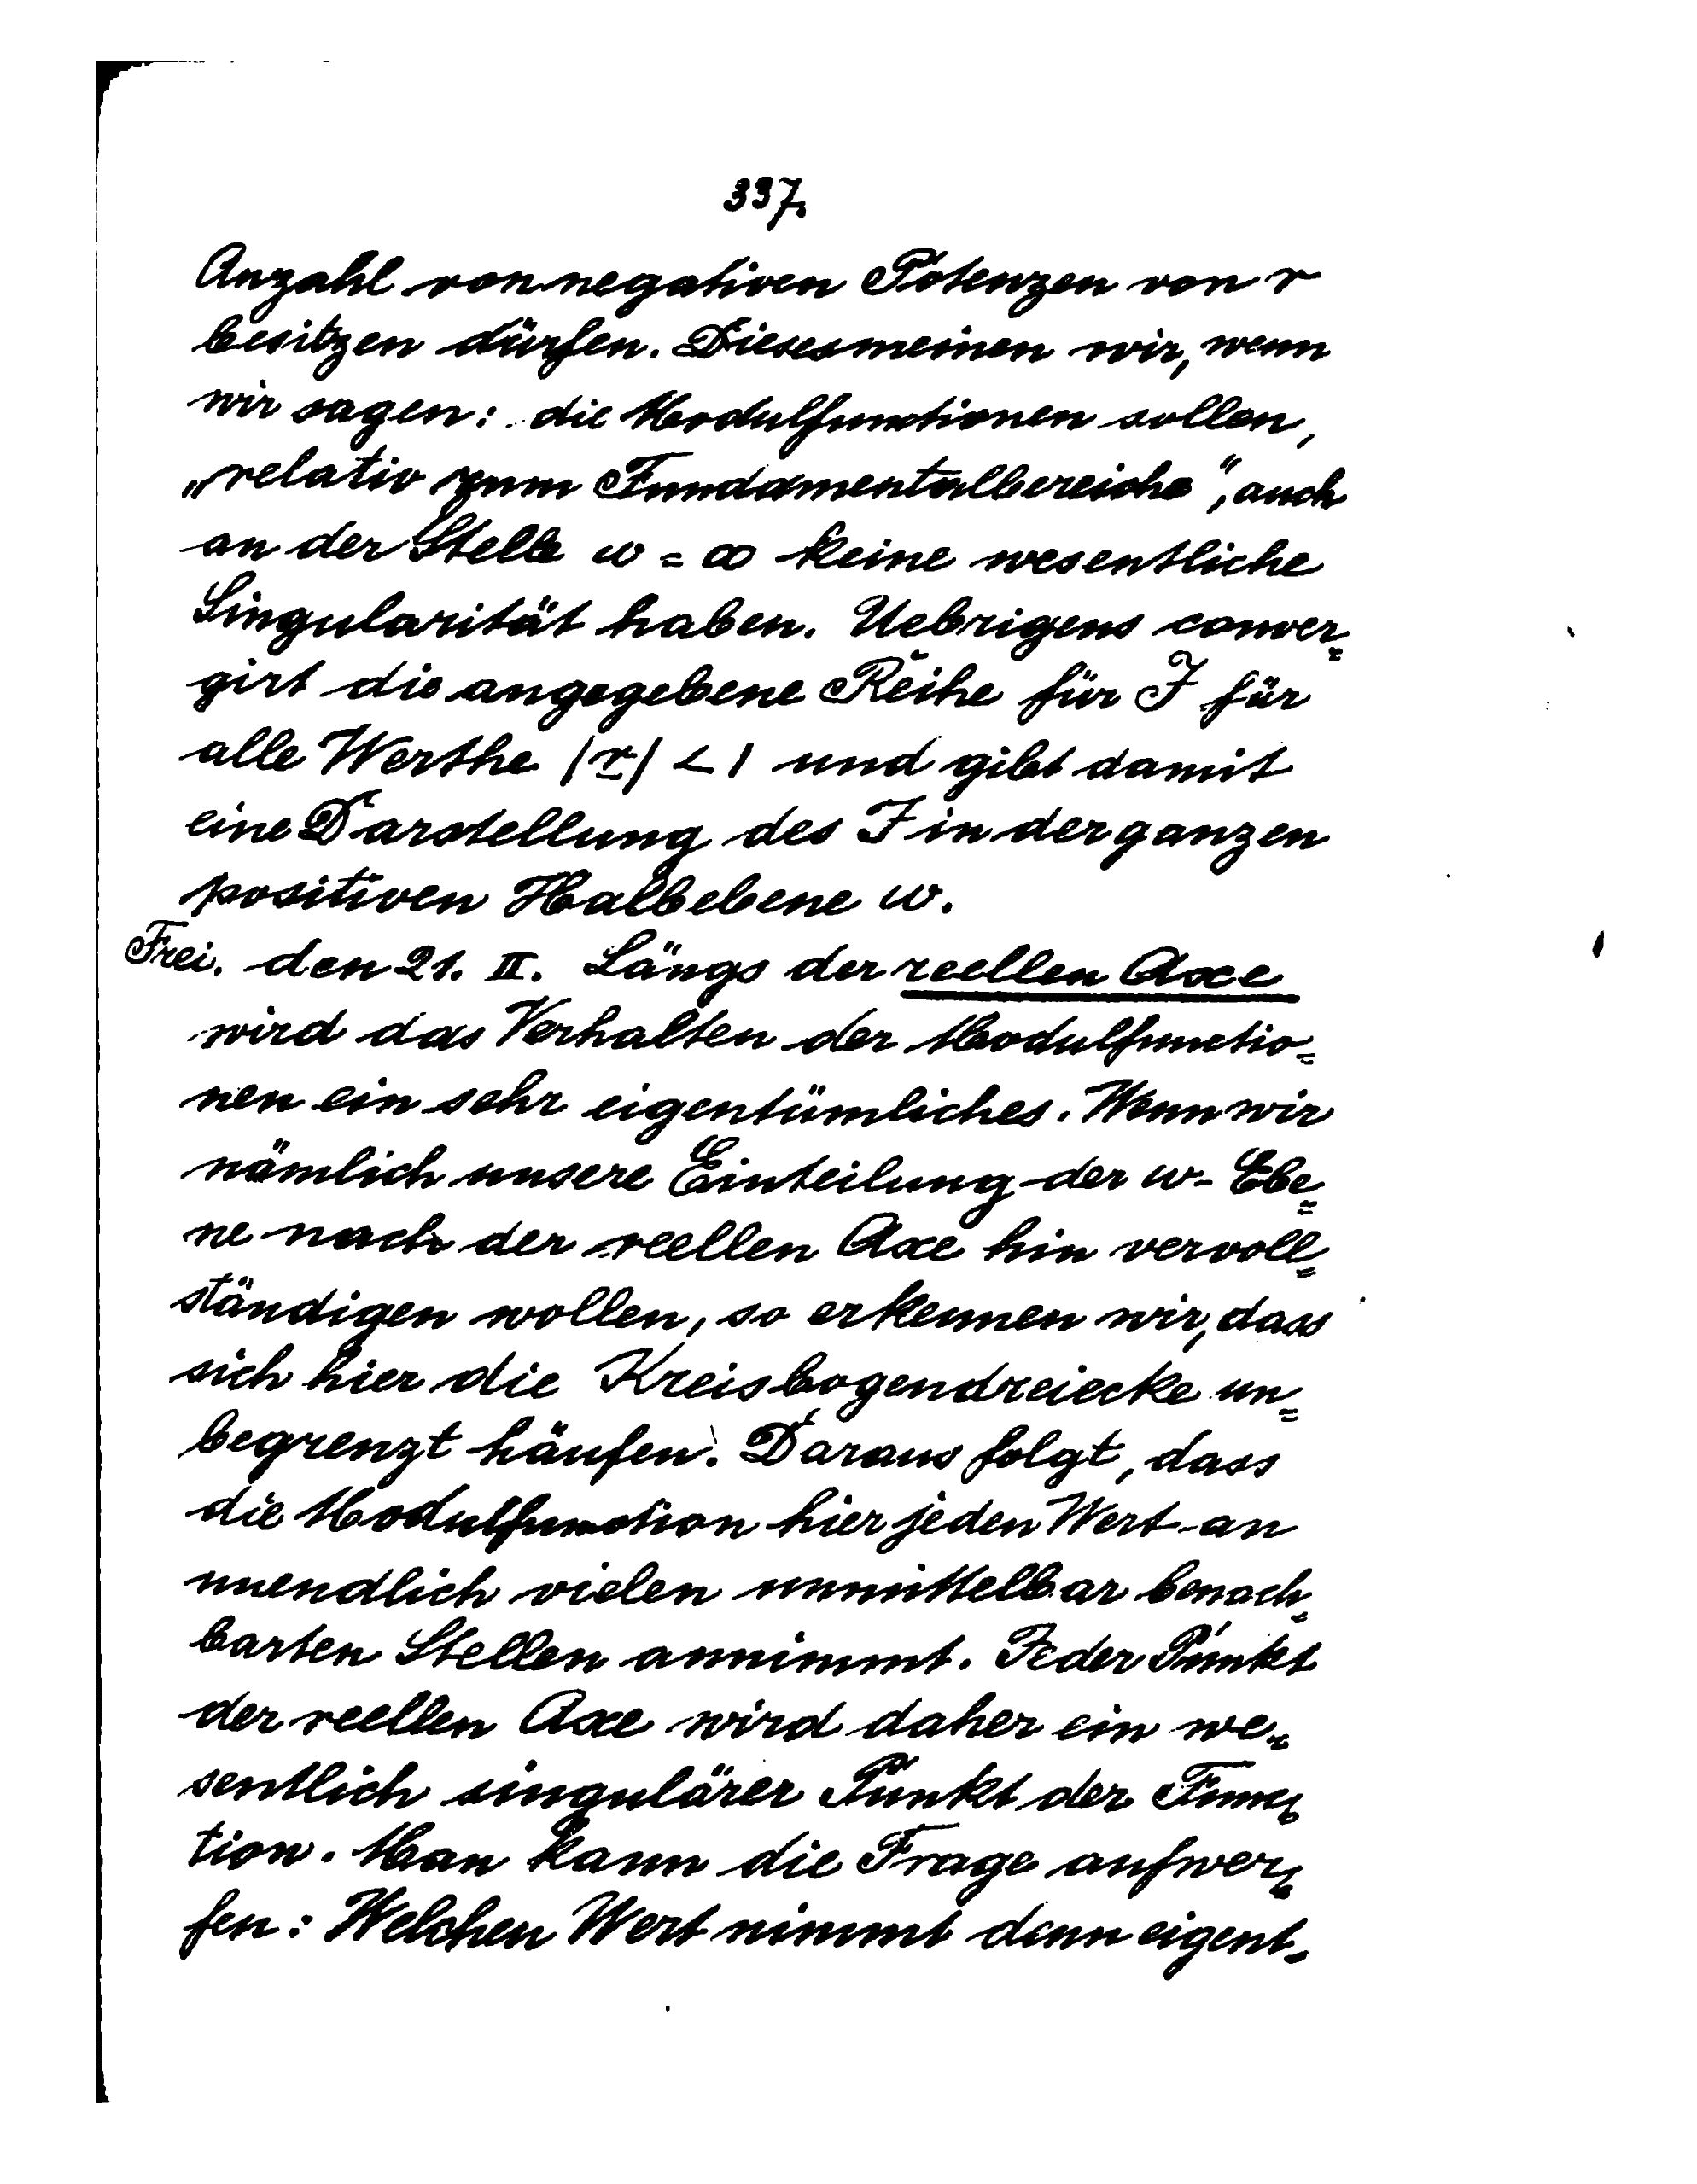 337.
Anzahl von negativen Potenzen von r
besitzen dürfen. Dieses meinen wir, wenn
wir sagen: die Modulfunctionen sollen,
„relativ zum Fundamentalbereiche“, auch
an der Stelle ω = ∞ keine wesentliche
Singularität haben. Uebrigens conver=
girt die angegebene Reihe für J für
alle Werthe |r| < 1 und gibt damit
eine Darstellung des J in der ganzen
positiven Halbebene ω.
Frei. den 21. II. Längs der reellen Axe
wird das Verhalten der Modulfunctio=
nen ein sehr eigentümliches. Wenn wir
nämlich unsere Einteilung der ω-Ebe=
ne nach der reellen Axe hin vervoll=
ständigen wollen, so erkennen wir, dass
sich hier die Kreisbogendreiecke un=
begrenzt häufen. Daraus folgt, dass
die Modulfunction hier jeden Wert an
unendlich vielen unmittelbar benach=
barten Stellen annimmt. Jeder Punkt
der reellen Axe wird daher ein we=
sentlich singulärer Punkt der Func=
tion. Man kann die Frage aufwer=
fen: Welchen Wert nimmt denn eigent=